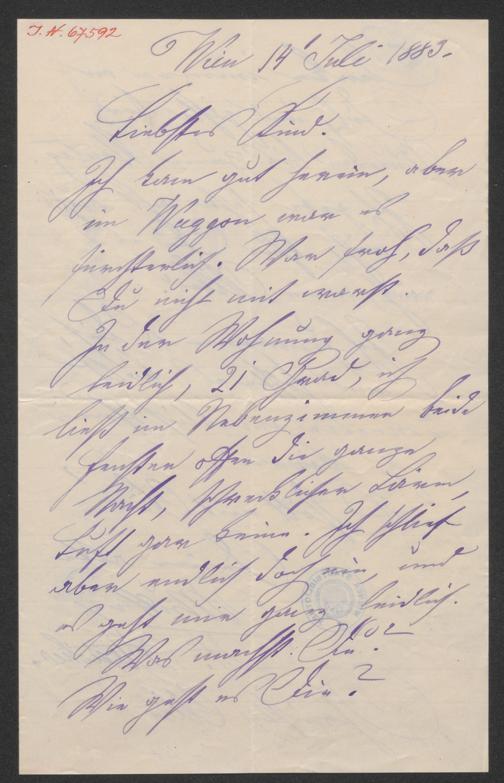 J. N. 67592
Wien 14' Juli 1883.
Liebstes Kind.
Ich kam gut herein, aber
im Waggon war es
fürchterlich. War froh, daß
Du nicht mit warst.
In der Wohnung ganz
leidlich, 21 Grad, ich
ließ im Nebenzimmer beide
Fenster offen die ganze
Nacht, schrecklicher Lärm,
Luft gar keine. Ich schlief
aber endlich doch ein, und
es geht mir ganz leidlich.
Was machst Du?
Wie geht es Dir?